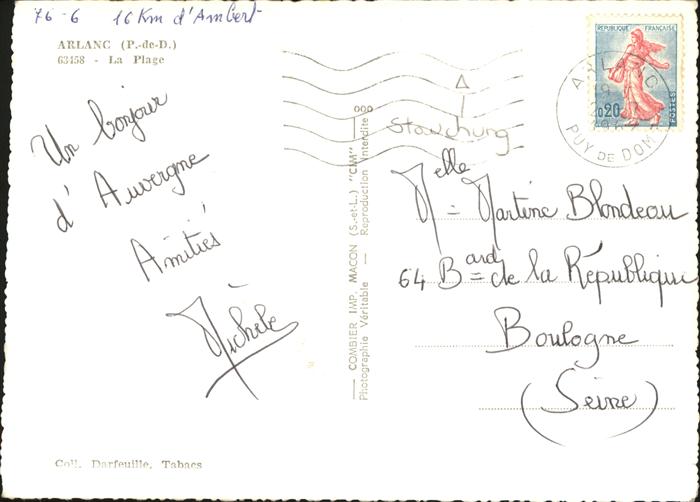 76-6 16 Km d'Ambert
ARLANC (P.-de-D.)
63458 - La Plage
Un bonjour
d'Auvergne
Amitiés
Michèle
Coll. Darfeuille, Tabacs
COMBIER IMP. MACON (S.-et-L.) "CIM"
Photographie Véritable - Reproduction Interdite
REPUBLIQUE FRANÇAISE
0,20
POSTES
ARLANC
PUY DE DOME
Melle Martine Blondeau
64 Bard de la République
Boulogne
(Seine)